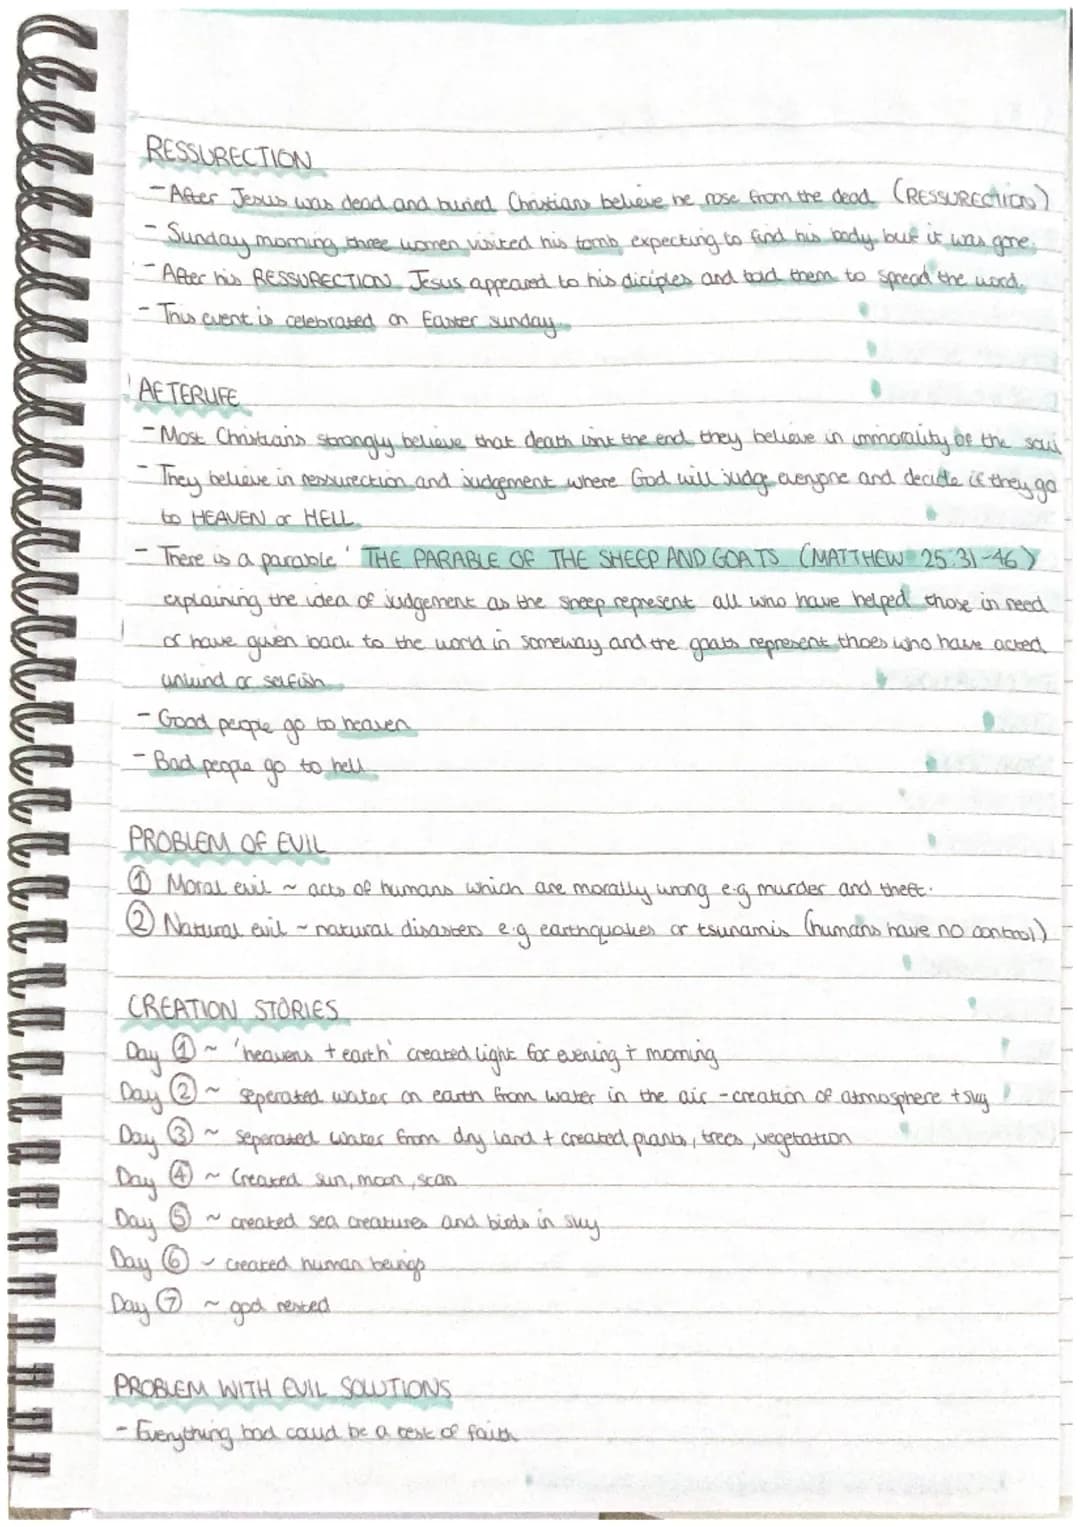 RESSURECTION
- After Jesus was dead and buried Christians believe he rose from the dead (RESSURECTION)
- Sunday morning three women visited his tomb expecting to find his body but it was gone.
- After his RESSURECTION Jesus appeared to his diciples and told them to spread the word.
- This event is celebrated on Easter sunday
AFTERLIFE
- Most Christians strongly believe that death isnt the end they believe in immorality of the soul
- They believe in ressurection and judgement where God will judge everyone and decide if they go
to HEAVEN or HELL
- There is a parable ' THE PARABLE OF THE SHEEP AND GOATS (MATTHEW 25:31-46)
explaining the idea of judgement as the sheep represent all who have helped those in need
or have given back to the world in someway and the goats represent thoes who have acted
unkind or selfish
- Good people go to heaven
- Bad people go to hell
PROBLEM OF EVIL
① Moral evil ~ acts of humans which are morally wrong e.g murder and theft.
② Natural evil ~ natural disasters e.g earthquakes or tsunamis (humans have no control)
CREATION STORIES
Day ① ~ 'heavens + earth' created light for evening + morning
Day ② ~ seperated water on earth from water in the air - creation of atmosphere + sky
Day ③ ~ seperated water from dry land + created plants, trees, vegetation
Day ④ ~ Created sun, moon, stars
Day ⑤ ~ created sea creatures and birds in sky
Day ⑥ ~ created human beings
Day ⑦ ~ god rested
PROBLEM WITH EVIL SOLUTIONS
- Everything bad could be a test of faith